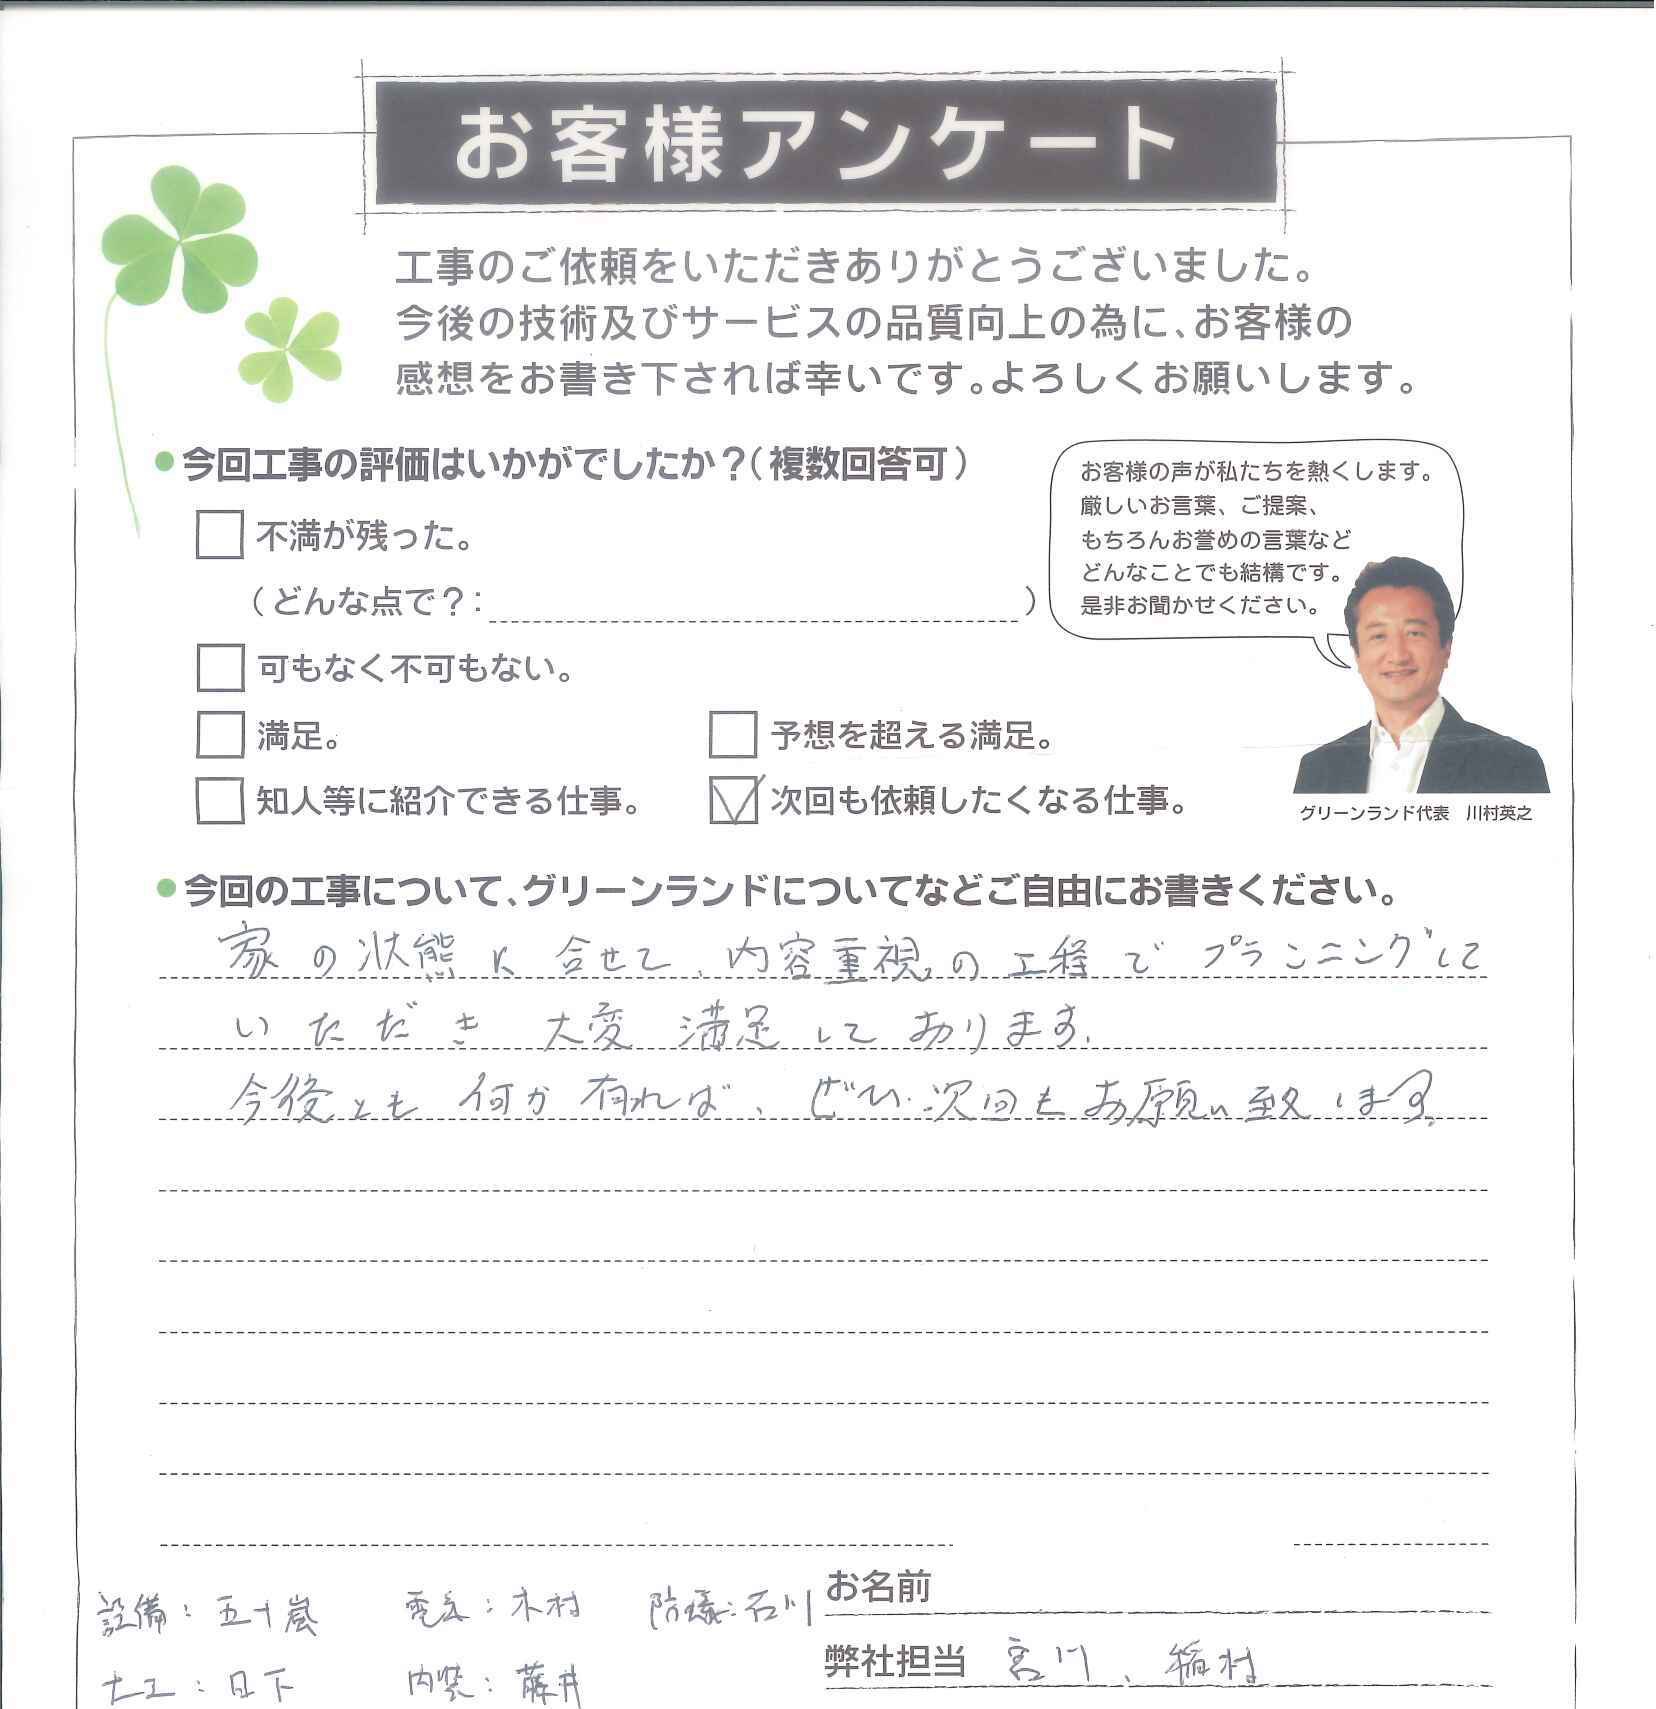 お客様アンケート
工事のご依頼をいただきありがとうございました。
今後の技術及びサービスの品質向上の為に、お客様の
感想をお書き下されば幸いです。よろしくお願いします。
●今回工事の評価はいかがでしたか？（複数回答可）
不満が残った。
（どんな点で？：　　　）
可もなく不可もない。
満足。
予想を超える満足。
知人等に紹介できる仕事。
次回も依頼したくなる仕事。
お客様の声が私たちを熱くします。
厳しいお言葉、ご提案、
もちろんお誉めの言葉など
どんなことでも結構です。
是非お聞かせください。
グリーンランド代表　川村英之
●今回の工事について、グリーンランドについてなどご自由にお書きください。
家の状態に合せて、内容重視の工程でプランニングして
いただき大変満足しております。
今後とも何か有れば、ぜひ次回もお願い致します。
設備：五十嵐　電気：木村　防蟻：石川
大工：日下　内装：藤井
お名前
弊社担当　宮川、稲村